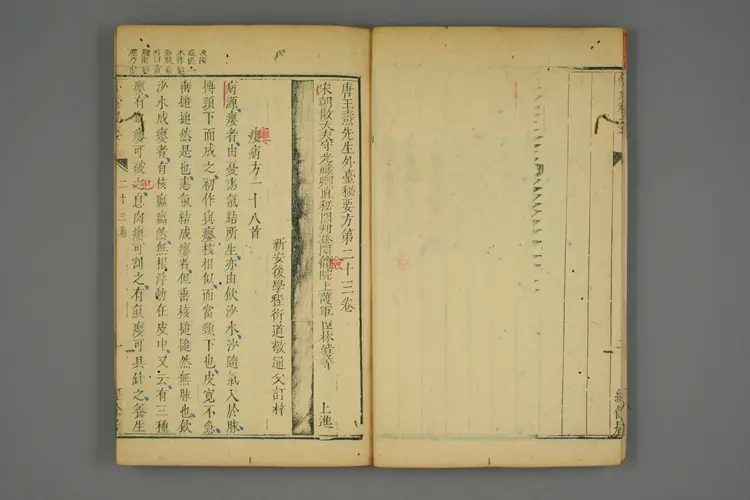 唐王燾先生外臺秘要方第二十三卷
宋朝散大夫守光祿卿直秘閣判登聞檢院上護軍臣林億等 上進
新安後學程衍道敬通父訂梓
癭病方一十八首
病源癭者由憂恚氣結所生亦由飲沙水沙隨氣入於脉
搏頸下而成之初作與癭核相似而當頸下也皮寬不急
垂搥搥然是也恚氣結成癭者但垂核搥搥然無脉也飲
沙水成癭者有核㿔㿔然無根浮動在皮中又云有三種
癭有血癭可破之息肉癭可割之有氣癭可具針之養生
二十三卷